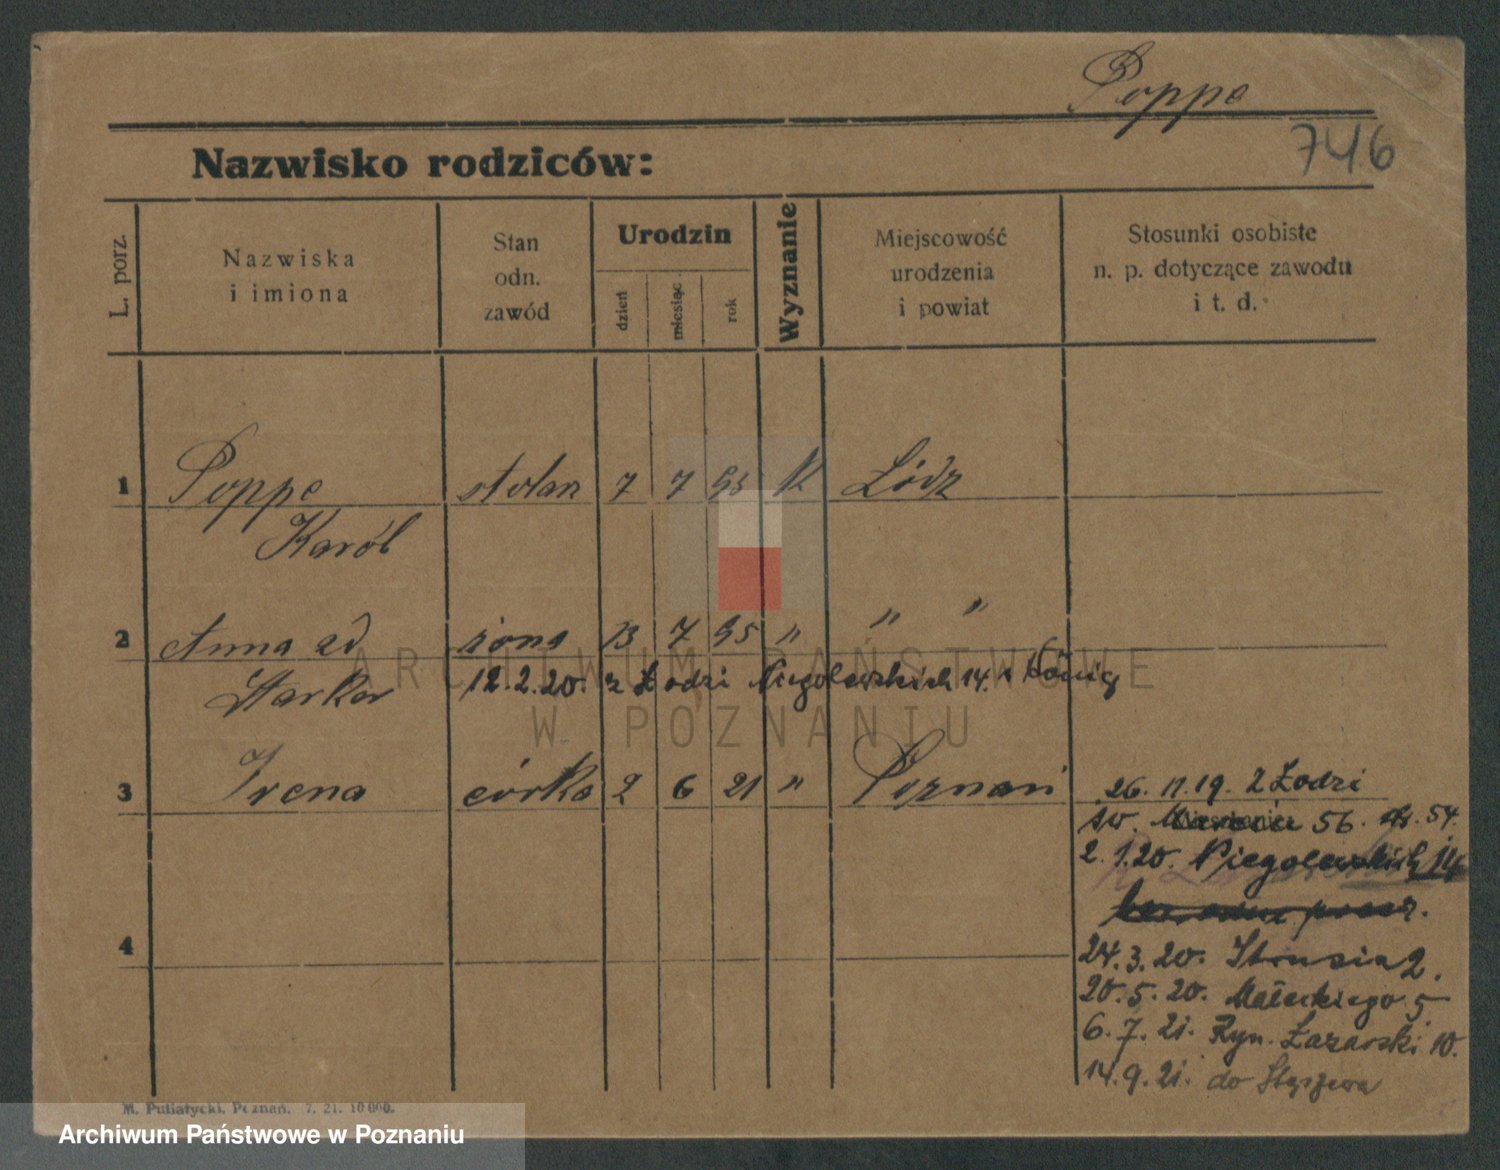 Poppe
746
Nazwisko rodziców:
L. porz.
Nazwiska
i imiona
Stan
odn.
zawód
Urodzin
dzień
miesiąc
rok
Wyznanie
Miejscowość
urodzenia
i powiat
Stosunki osobiste
n. p. dotyczące zawodu
i t. d.
1 Poppe stolarz 7 7 93 K Łódz
Karól
2 Anna zd żona 13 7 95 " " "
12.2.20. z Łodzi Niegolewskich 14.
3 Irena córka 2 6 21 " Poznań
26. 11. 19. z Łodzi
św. 56. 54.
2.1.20. Niegolewskich 14
4
24.3.20. Strusia 2.
20.5.20. Małeckiego 5
6.7.21. Ryn. Łazarski 10.
14.9.21. do Stęszewa
M. Putiatycki, Poznań. 7. 21. 10 000.
ARCHIWUM PAŃSTWOWE
W POZNANIU
Archiwum Państwowe w Poznaniu